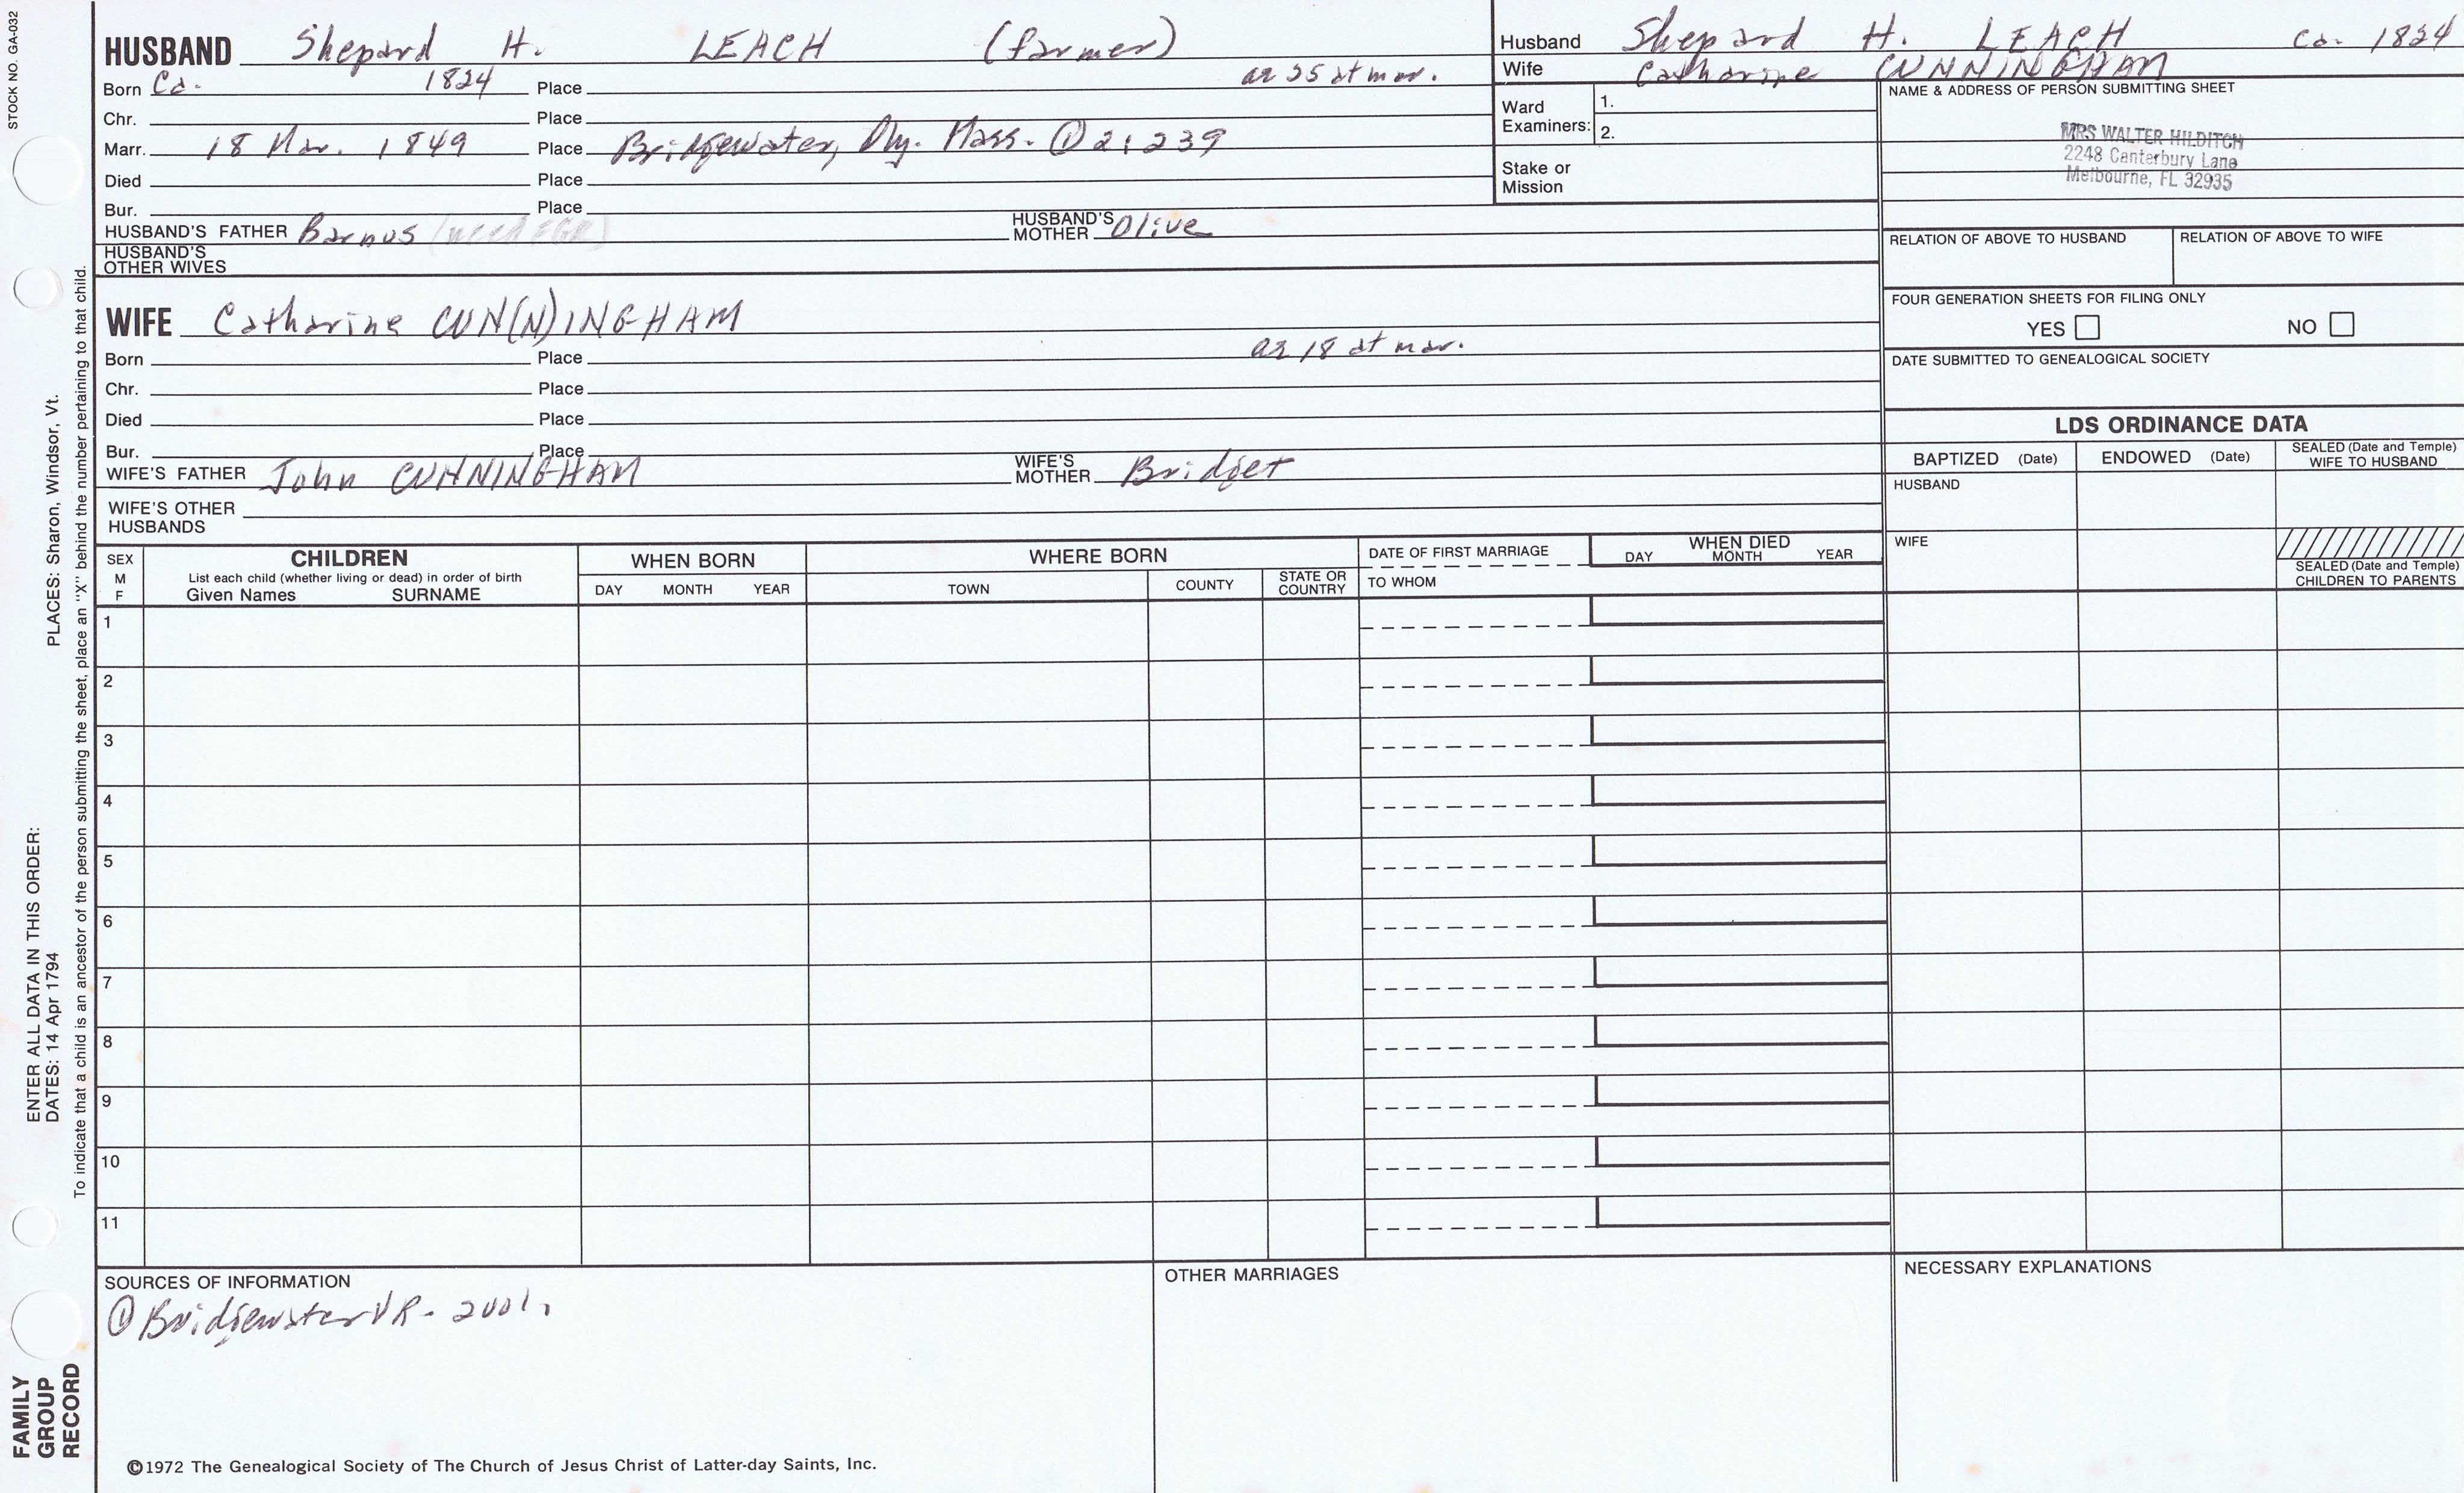 STOCK NO. GA-032
HUSBAND Shepard H. LEACH (farmer)
Born Ca. 1824 Place ae 25 at mar.
Chr. Place
Marr. 18 Mar. 1849 Place Bridgewater, Ply. Mass. ① 2:239
Died Place
Bur. Place
HUSBAND'S FATHER Barnus (need FGR) HUSBAND'S MOTHER Olive
HUSBAND'S
OTHER WIVES
WIFE Catharine CUN(N)INGHAM
Born Place ae 18 at mar.
Chr. Place
Died Place
Bur. Place
WIFE'S FATHER John CUNNINGHAM WIFE'S MOTHER Bridget
WIFE'S OTHER
HUSBANDS
Husband Shepard H. LEACH Ca. 1824
Wife Catharine CUNNINGHAM
Ward Examiners: 1.
2.
Stake or
Mission
NAME & ADDRESS OF PERSON SUBMITTING SHEET
MRS WALTER HILDITCH
2248 Canterbury Lane
Melbourne, FL 32935
RELATION OF ABOVE TO HUSBAND RELATION OF ABOVE TO WIFE
FOUR GENERATION SHEETS FOR FILING ONLY
YES NO
DATE SUBMITTED TO GENEALOGICAL SOCIETY
LDS ORDINANCE DATA
BAPTIZED (Date) ENDOWED (Date) SEALED (Date and Temple) WIFE TO HUSBAND
HUSBAND
WIFE
SEALED (Date and Temple)
CHILDREN TO PARENTS
SEX
M
F
CHILDREN
List each child (whether living or dead) in order of birth
Given Names SURNAME
WHEN BORN
DAY MONTH YEAR
WHERE BORN
TOWN COUNTY STATE OR COUNTRY
DATE OF FIRST MARRIAGE
TO WHOM
WHEN DIED
DAY MONTH YEAR
1
2
3
4
5
6
7
8
9
10
11
SOURCES OF INFORMATION
① Bridgewater VR - 2 vol.
OTHER MARRIAGES
NECESSARY EXPLANATIONS
©1972 The Genealogical Society of The Church of Jesus Christ of Latter-day Saints, Inc.
PLACES: Sharon, Windsor, Vt.
ENTER ALL DATA IN THIS ORDER:
DATES: 14 Apr 1794
To indicate that a child is an ancestor of the person submitting the sheet, place an "X" behind the number pertaining to that child.
FAMILY
GROUP
RECORD